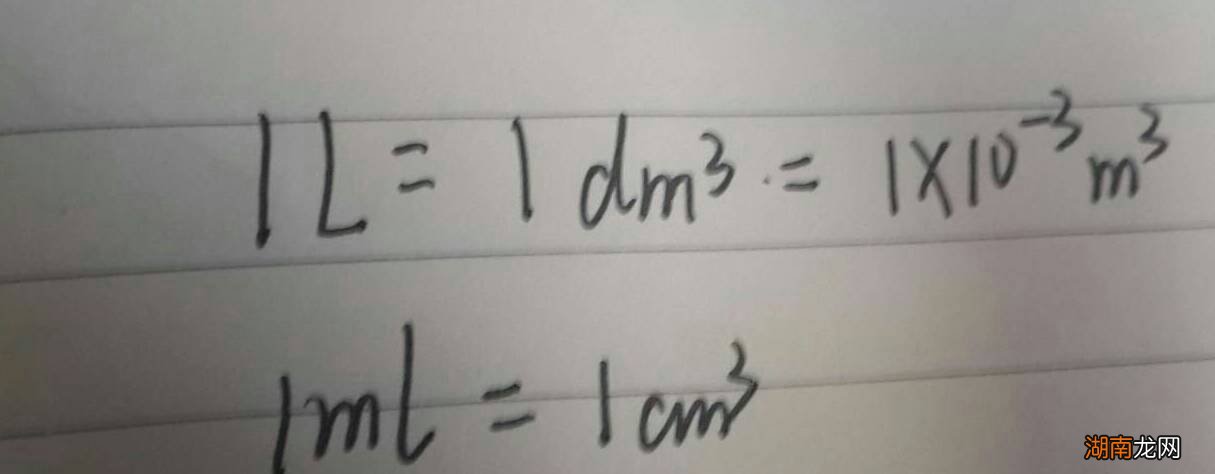 1L = 1dm³ = 1×10⁻³m³
1ml = 1cm³
湖南龙网